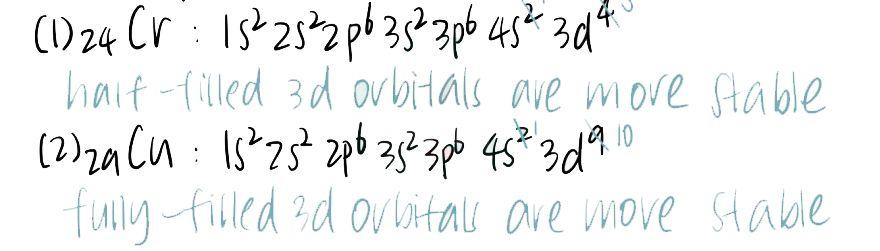 (1) ₂₄Cr : 1s² 2s² 2p⁶ 3s² 3p⁶ 4s² ¹ 3d⁴ ⁵
half-filled 3d orbitals are more stable
(2) ₂₉Cu : 1s² 2s² 2p⁶ 3s² 3p⁶ 4s² ¹ 3d⁹ ¹⁰
fully-filled 3d orbitals are more stable